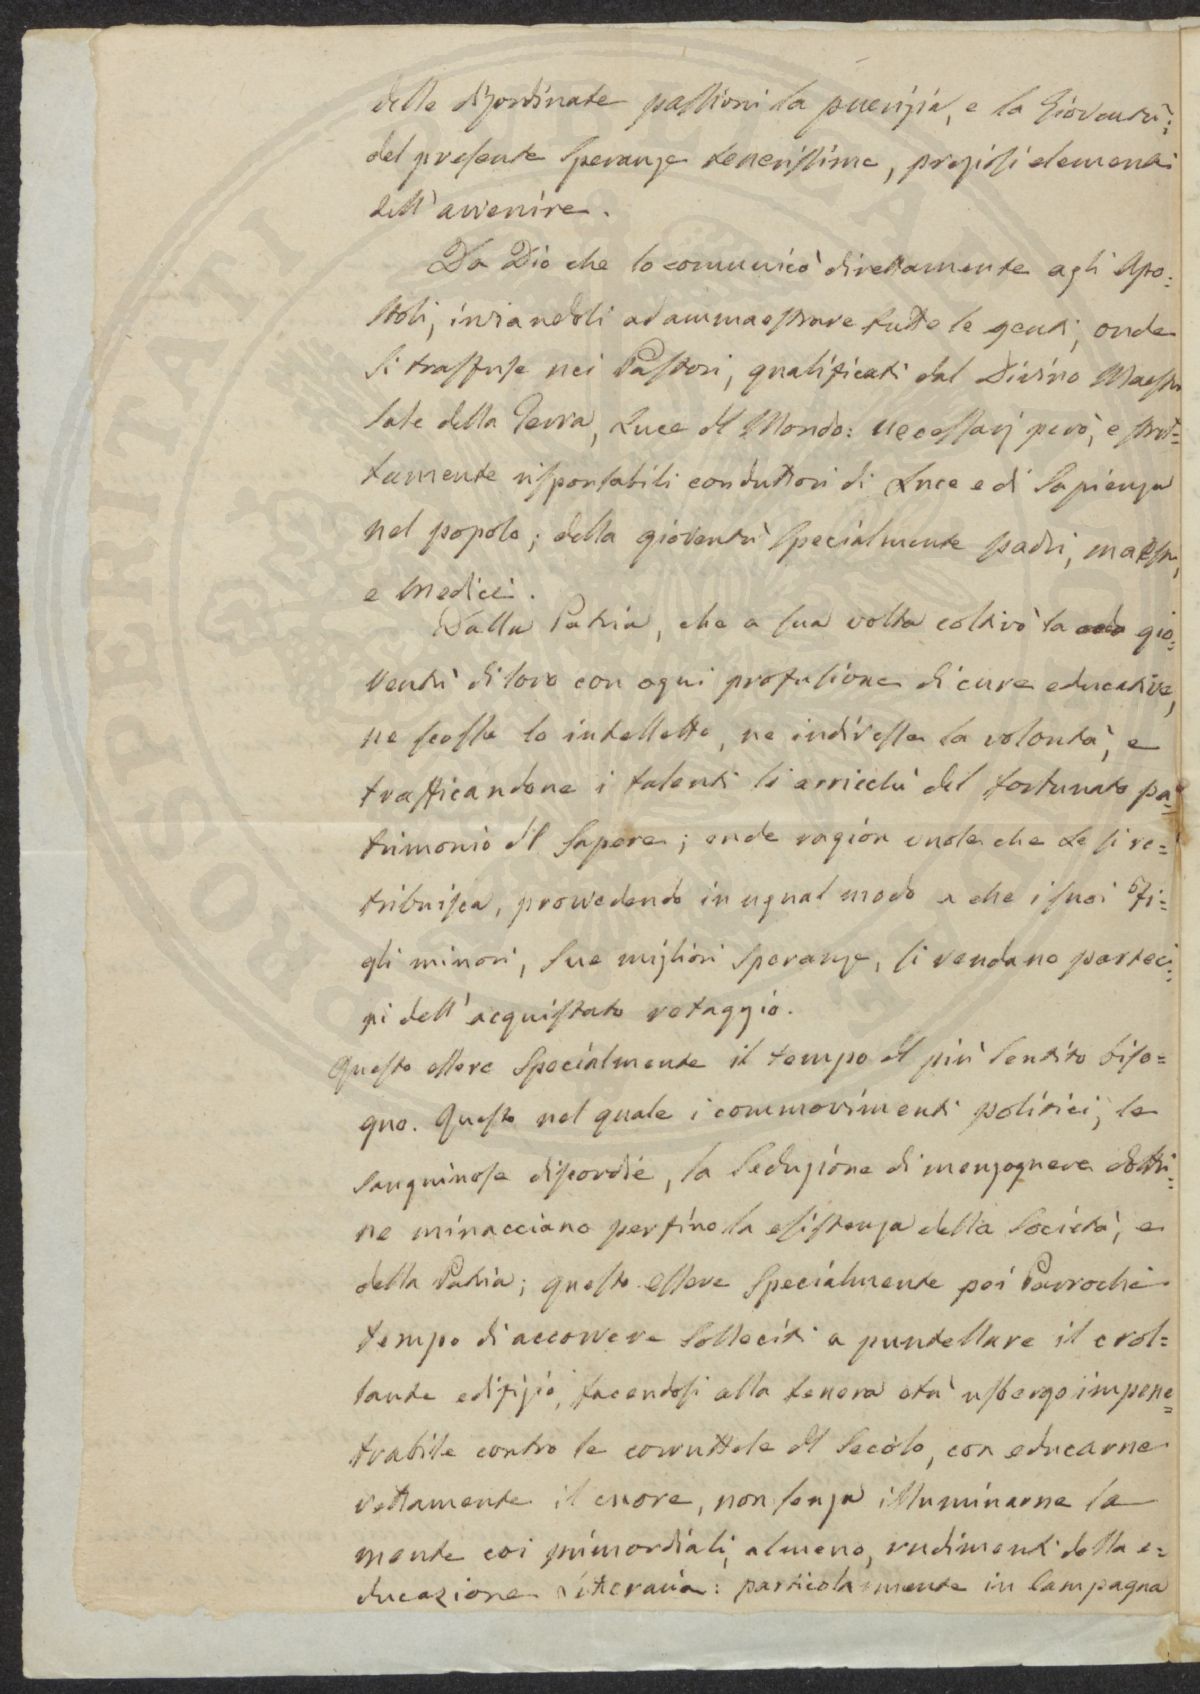 delle disordinate passioni la puerizia, e la Gioventù:
del presente speranze tenerissime, preziosi elementi
dell'avvenire.
Da Dio che lo comunicò direttamente agli Apo=
stoli, inviandoli ad ammaestrare tutte le genti, onde
si trasfuse nei Pastori, qualificati dal Divino Maestro
Sale della Terra, Luce del Mondo: necessarj però, e stret=
tamente risponsabili conduttori di Luce e di Sapienza
nel popolo; della gioventù specialmente padri, maestri,
e medici.
Dalla Patria, che a sua volta coltivò la gio=
ventù di loro con ogni profusione di cure educative,
ne scosse lo intelletto, ne indiresse la volontà, e
trafficandone i talenti li arricchì del fortunato pa=
trimonio del Sapere; onde ragion vuole che Le si re=
tribuisca, provvedendo in ugual modo a che i suoi Fi=
gli minori, Sue migliori Speranze, si rendano parteci=
pi dell'acquistato retaggio.
Questo essere Specialmente il tempo del più sentito biso=
gno. Questo nel quale i commovimenti politici, le
sanguinose discordie, la Seduzione di menzognere dottri=
ne minacciano perfino la esistenza della Società, e
della Patria; questo essere Specialmente pei Parrochi
tempo di accorrere solleciti a puntellare il crol=
lante edifizio, facendosi alla tenera età usbergo impene=
trabile contro le corruttele del Secolo, con educarne
rettamente il cuore, non senza illuminarne la
mente coi primordiali, almeno, rudimenti della e=
ducazione Litteraria: particolarmente in Campagna
PROSPERITATI PUBLICAE